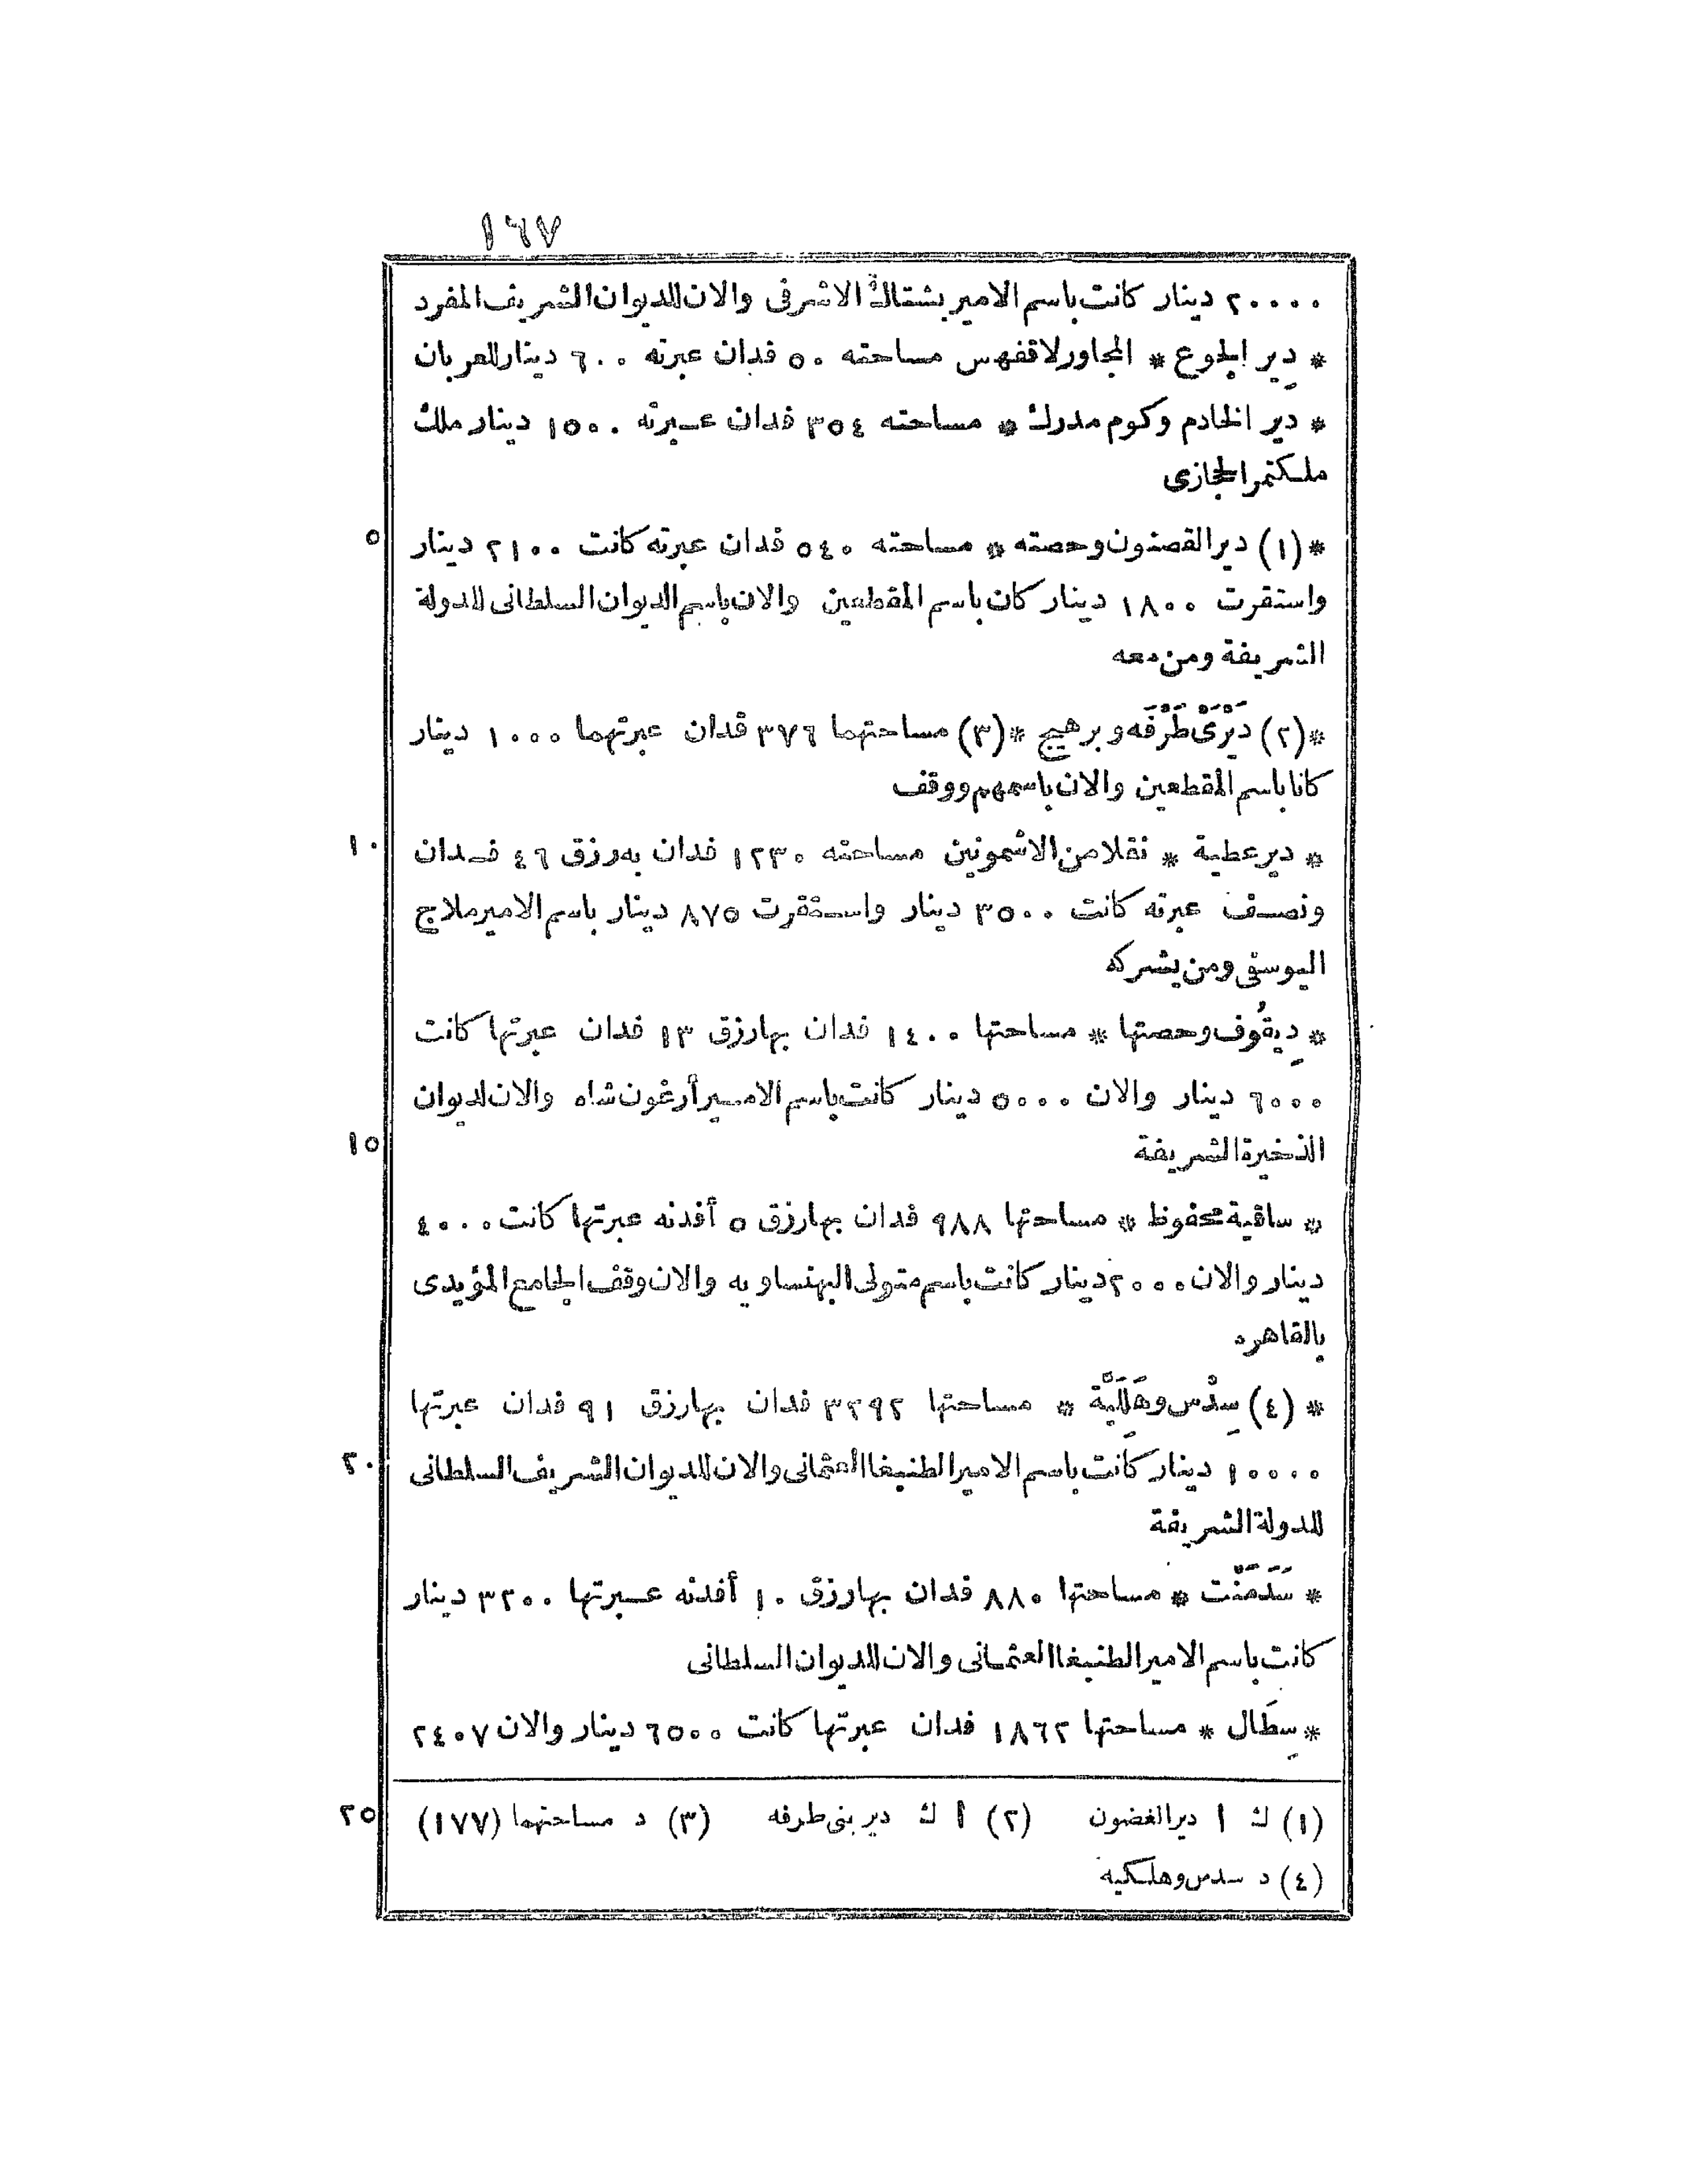 ١٦٧
٢٠٠٠٠ دينار كانت باسم الامير بشتاك الاشرفى والان للديوان الشريف المفرد
* دِير الجوع * المجاور لاقفهس مساحته ٥٠ فدان عبرته ٦٠٠ دينار للعربان
* دير الخادم وكوم مدرك * مساحته ٣٥٤ فدان عبرته ١٥٠٠ دينار ملك
ملكتمر الحجازى
٥ *(١) دير القصنون وحصته * مساحته ٥٤٠ فدان عبرته كانت ٢١٠٠ دينار
واستقرت ١٨٠٠ دينار كان باسم المقطعين والان باسم الديوان السلطانى للدولة
الشريفة ومن معه
*(٢) دَيْرَىْ طَرْفَه وبرهيج *(٣) مساحتهما ٣٧٦ فدان عبرتهما ١٠٠٠ دينار
كانا باسم المقطعين والان باسمهم ووقف
١٠ * دير عطية * نقلا من الاشمونين مساحته ١٢٣٠ فدان به رزق ٤٦ فدان
ونصف عبرته كانت ٣٥٠٠ دينار واستقرت ٨٧٥ دينار باسم الامير ملاج
اليوسفى ومن يشركه
* دِيقُوف وحصتها * مساحتها ١٤٠٠ فدان بها رزق ١٣ فدان عبرتها كانت
٦٠٠٠ دينار والان ٥٠٠٠ دينار كانت باسم الامير أرغون شاه والان لديوان
١٥ الذخيرة الشريفة
* ساقية محفوظ * مساحتها ٩٨٨ فدان بها رزق ٥ أفدنه عبرتها كانت ٤٠٠٠
دينار والان ٢٠٠٠ دينار كانت باسم متولى البهنساويه والان وقف الجامع المؤيدى
بالقاهره
* (٤) سِدْس وهَلَلِيَّة * مساحتها ٣٢٩٢ فدان بها رزق ٩١ فدان عبرتها
٢٠ ١٠٠٠٠ دينار كانت باسم الامير الطنبغا العثمانى والان للديوان الشريف السلطانى
للدولة الشريفة
* سَدَمَنْت * مساحتها ٨٨٠ فدان بها رزق ١٠ أفدنه عبرتها ٣٢٠٠ دينار
كانت باسم الامير الطنبغا العثمانى والان للديوان السلطانى
* سِطَال * مساحتها ١٨٦٢ فدان عبرتها كانت ٦٥٠٠ دينار والان ٢٤٠٧
٢٥ (١) ك أ دير الغضون (٢) أ ك دير بنى طرفه (٣) د مساحتهما (١٧٧)
(٤) د سدس وهلكيه